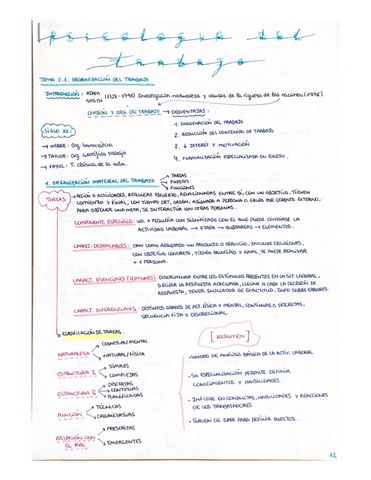 Psicología del
trabajo
TEMA 2.1. ORGANIZACIÓN DEL TRABAJO
INTRODUCCIÓN: ADAM SMITH Investigación naturaleza y causas de la riqueza de las naciones (1776)
DIVISIÓN Y ORG. DEL TRABAJO → DESVENTAJAS:
1. ENAJENACIÓN DEL TRABAJO
2. REDUCCIÓN DEL CONTENIDO DE TRABAJO
3. ↓ INTERÉS Y MOTIVACIÓN
4. FORMALIZACIÓN ESPECIALIZADA EN
SIGLO XX:
→ WEBER: Org. burocrática
→ TAYLOR: Org. científica trabajo
→ FAYOL: T. clásica de la adm.
1. ORGANIZACIÓN MATERIAL DEL TRABAJO
TAREAS
PUESTOS
FUNCIONES
TAREAS
→ ACCIÓN O ACTIVIDADES, REQUIERE ESFUERZO, RELACIONADAS ENTRE SÍ, CON UN OBJETIVO, TIENEN
COMIENZO Y FINAL, CON TIEMPO DET, ORDEN, ASIGNADA A PERSONA O GRUPO POR GERENTE EXTERNO,
PARA OBTENER UNA META, SE INTERACTÚA CON OTRAS PERSONAS.
COMPONENTE ESPECÍFICO: UD. + PEQUEÑA CON SIGNIFICADO CON EL QUE PUEDE DIVIDIRSE LA
ACTIVIDAD LABORAL → ETAPA → SUBTAREAS → ELEMENTOS.
CARACT. DESTACABLES: DAN COMO RESULTADO UN PRODUCTO O SERVICIO, INCLUYE DECISIONES,
CON OBJETIVO CONCRETO, TIENEN PRINCIPIO Y FINAL, SE PUEDE REALIZAR
+ 1 PERSONA.
CARACT. ESENCIALES (COMUNES): DISCRIMINAR ENTRE LOS ESTÍMULOS PRESENTES EN LA SIT. LABORAL,
DECIDIR LA RESPUESTA ADECUADA, LLEVAR A CABO LA DECISIÓN DE
RESPUESTA, TENER INDICADOR DE EXACTITUD, INFO SOBRE ERRORES.
CARACT. DIFERENCIALES: DISTINTOS GRADOS DE ACT. FÍSICA Y MENTAL, CONTINUAS O DISCRETAS,
SECUENCIA FIJA O DISCRECIONAL.
CLASIFICACIÓN DE TAREAS.
NATURALEZA
COGNITIVA/MENTAL
NATURAL/FÍSICA
ESTRUCTURA I
SIMPLES
COMPLEJAS
ESTRUCTURA II
DISCRETAS
CONTINUAS
RAMIFICADAS
FUNCIÓN
TÉCNICAS
ORGANIZATIVAS
RELACIÓN CON
EL ROL
PRESCRITAS
EMERGENTES
[RESUMEN]
• UNIDAD DE ANÁLISIS BÁSICA DE LA ACTIV. LABORAL
• SU ESPECIALIZACIÓN PERMITE DEFINIR
CONOCIMIENTOS Y HABILIDADES.
• INFLUYE EN CONDUCTAS, HABILIDADES Y REACCIONES
DE LOS TRABAJADORES
• SIRVEN DE BASE PARA DEFINIR PUESTOS.
12